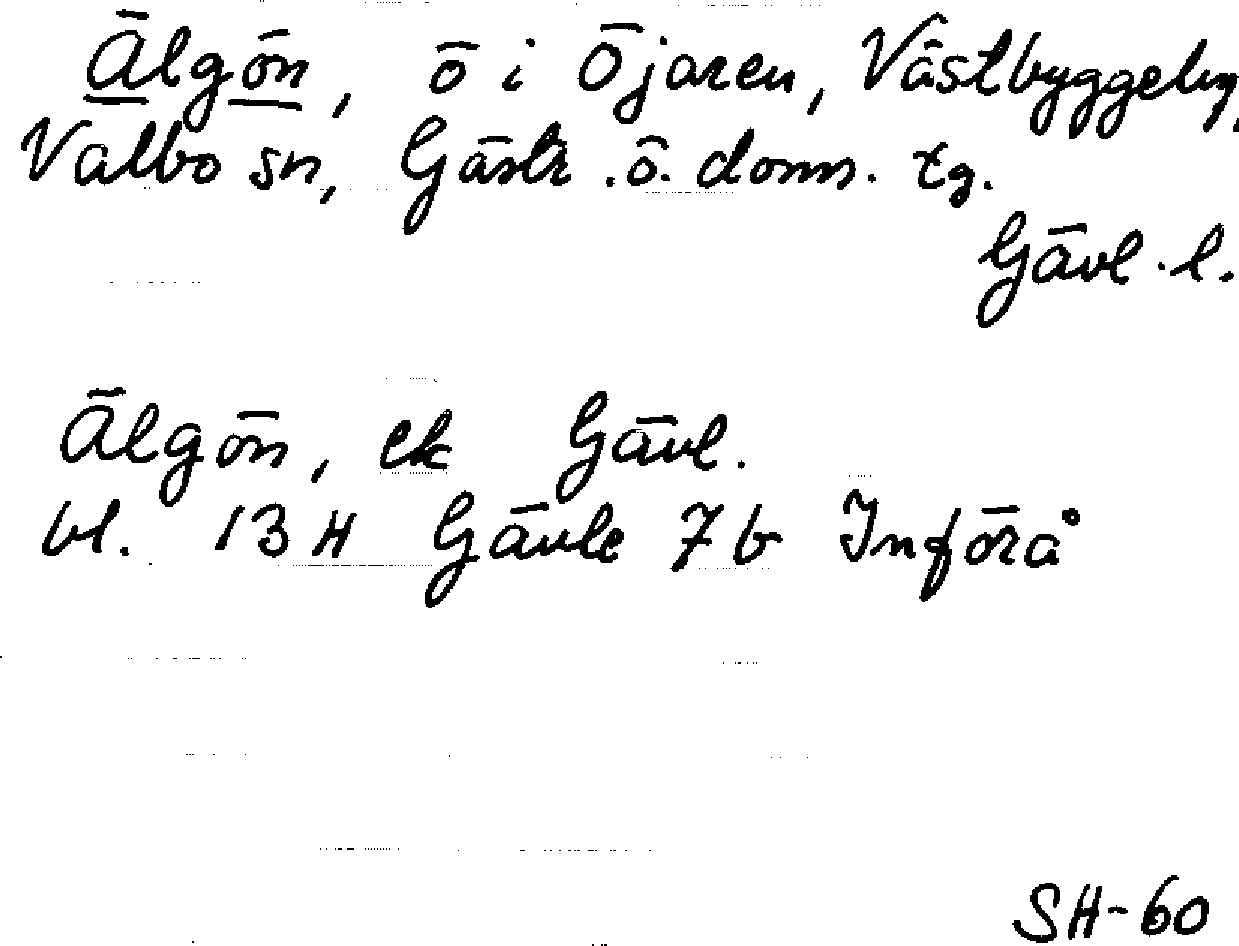 Älgön, ö i Öjaren, Västbyggeby,
Valbo sn, Gästr. ö. doms. tg.
Gävl. l.
Älgön, ek Gävl.
bl. 13 H Gävle 7 b Införå
SH-60